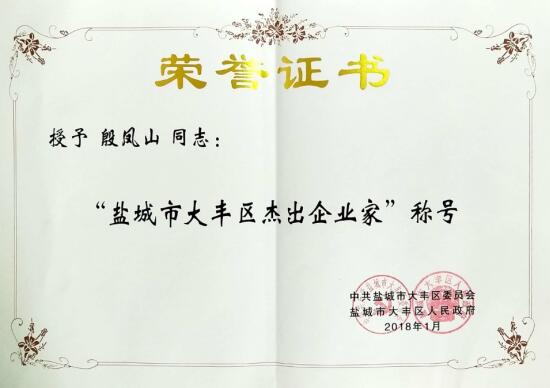 荣誉证书
授予 殷凤山 同志：
“盐城市大丰区杰出企业家”称号
中共盐城市大丰区委员会
盐城市大丰区人民政府
2018年1月